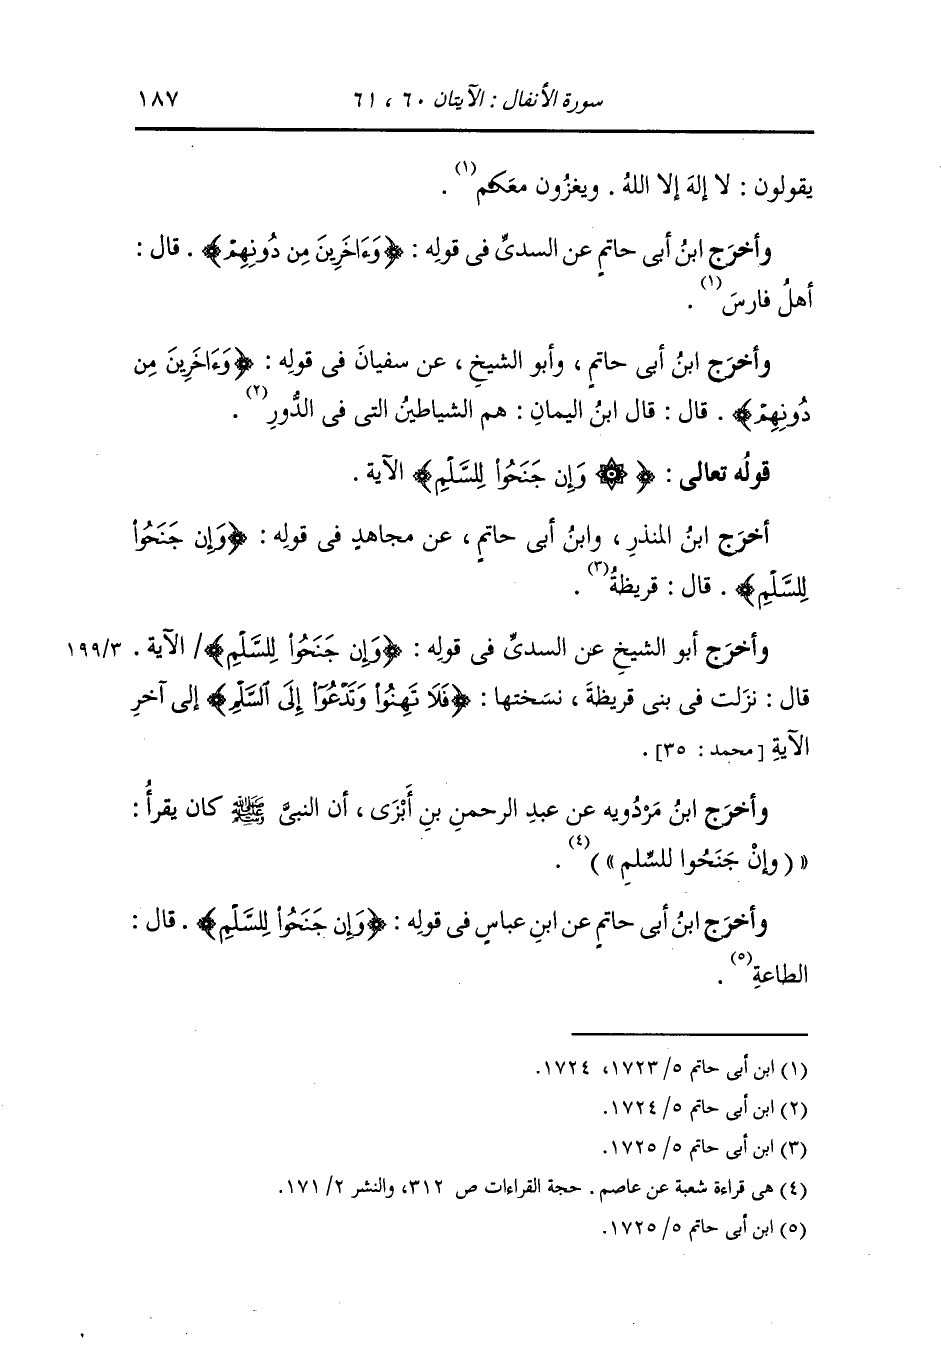 سورة الأنفال : الآيتان ٦٠ ، ٦١ ١٨٧
يقولون : لا إلهَ إلا اللهُ . ويغزُون معَكم(١) .
وأخرَج ابنُ أبى حاتمٍ عن السدىِّ فى قولِه : ﴿وَءَاخَرِينَ مِن دُونِهِمْ﴾ . قال :
أهلُ فارسَ(١) .
وأخرَج ابنُ أبى حاتمٍ ، وأبو الشيخِ ، عن سفيانَ فى قولِه : ﴿وَءَاخَرِينَ مِن
دُونِهِمْ﴾ . قال : قال ابنُ اليمانِ : هم الشياطينُ التى فى الدُّورِ(٢) .
قولُه تعالى : ﴿ ۞ وَإِن جَنَحُوا۟ لِلسَّلْمِ﴾ الآية .
أخرَج ابنُ المنذرِ ، وابنُ أبى حاتمٍ ، عن مجاهدٍ فى قولِه : ﴿وَإِن جَنَحُوا۟
لِلسَّلْمِ﴾ . قال : قريظةُ(٣) .
وأخرَج أبو الشيخِ عن السدىِّ فى قولِه : ﴿وَإِن جَنَحُوا۟ لِلسَّلْمِ﴾/ الآية . ١٩٩/٣
قال : نزَلت فى بنى قريظةَ ، نسَختها : ﴿فَلَا تَهِنُوا۟ وَتَدْعُوٓا۟ إِلَى ٱلسَّلْمِ﴾ إلى آخرِ
الآيةِ [محمد : ٣٥] .
وأخرَج ابنُ مَرْدُويه عن عبدِ الرحمنِ بنِ أَبْزَى ، أن النبىَّ ﷺ كان يقرأُ :
« ( وإنْ جَنَحُوا للسِّلمِ » )(٤) .
وأخرَج ابنُ أبى حاتمٍ عن ابنِ عباسٍ فى قولِه : ﴿وَإِن جَنَحُوا۟ لِلسَّلْمِ﴾ . قال :
الطاعةِ(٥) .
(١) ابن أبى حاتم ٥/ ١٧٢٣، ١٧٢٤.
(٢) ابن أبى حاتم ٥/ ١٧٢٤.
(٣) ابن أبى حاتم ٥/ ١٧٢٥.
(٤) هى قراءة شعبة عن عاصم . حجة القراءات ص ٣١٢، والنشر ٢/ ١٧١.
(٥) ابن أبى حاتم ٥/ ١٧٢٥.